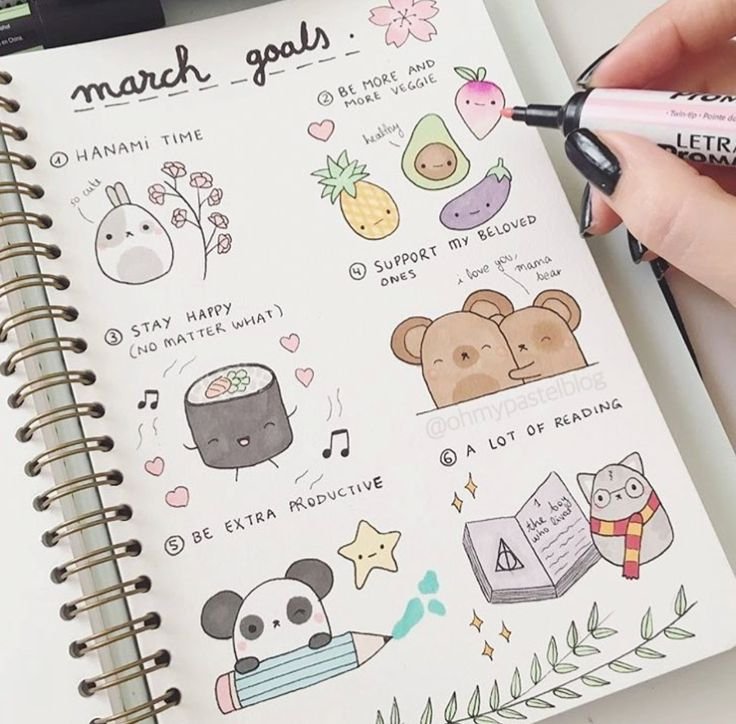 march goals.
① HANAMI TIME
so cute
② BE MORE AND
MORE VEGGIE
healthy
③ STAY HAPPY
(NO MATTER WHAT)
④ SUPPORT MY BELOVED
ONES
i love you,
mama
bear
@ohmypastelblog
⑤ BE EXTRA PRODUCTIVE
⑥ A LOT OF READING
1
the boy
who lived
Twin-tip • Pointe d
LETRA
PROMA